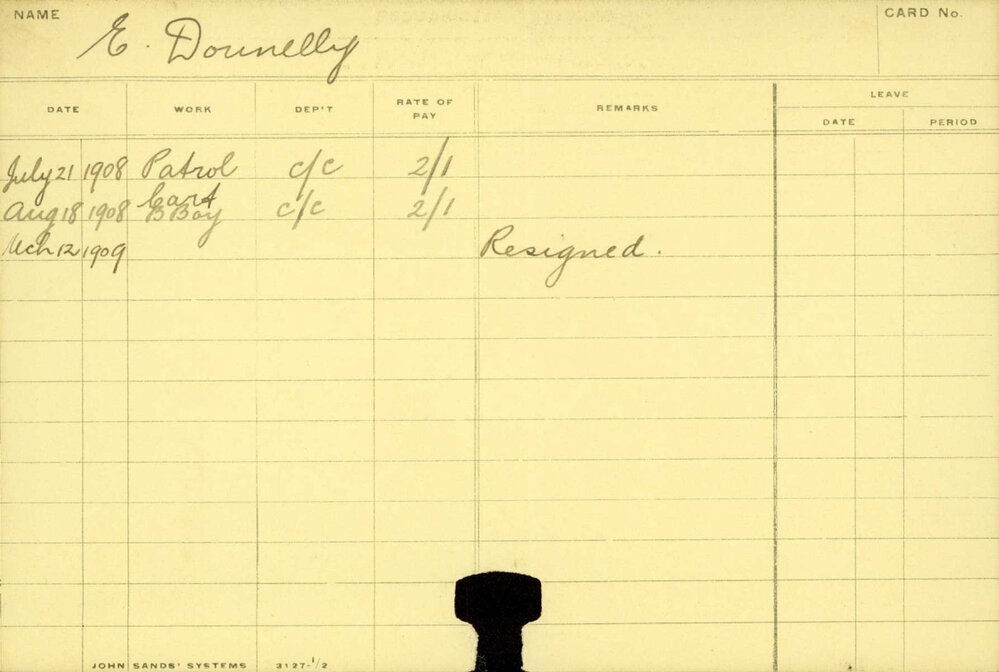 NAME E. Donnelly CARD No.
DATE WORK DEP'T RATE OF PAY REMARKS LEAVE
DATE PERIOD
July 21 1908 Patrol c/c 2/1
Cart
Aug 18 1908 Boy c/c 2/1
Mch 12 1909 Resigned.
JOHN SANDS' SYSTEMS 3127-1/2